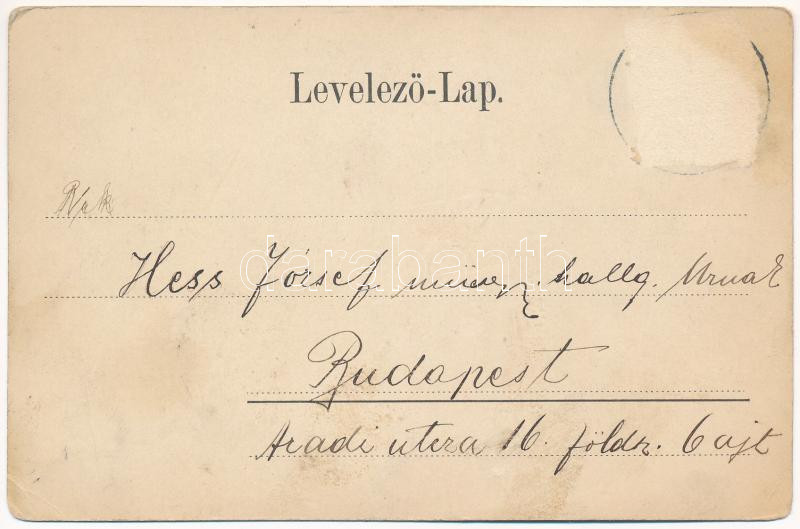 Levelező-Lap.
Hess József műegy. hallg. Urnak
Budapest
Aradi utcza 16. földz. 6 ajt
darabanth